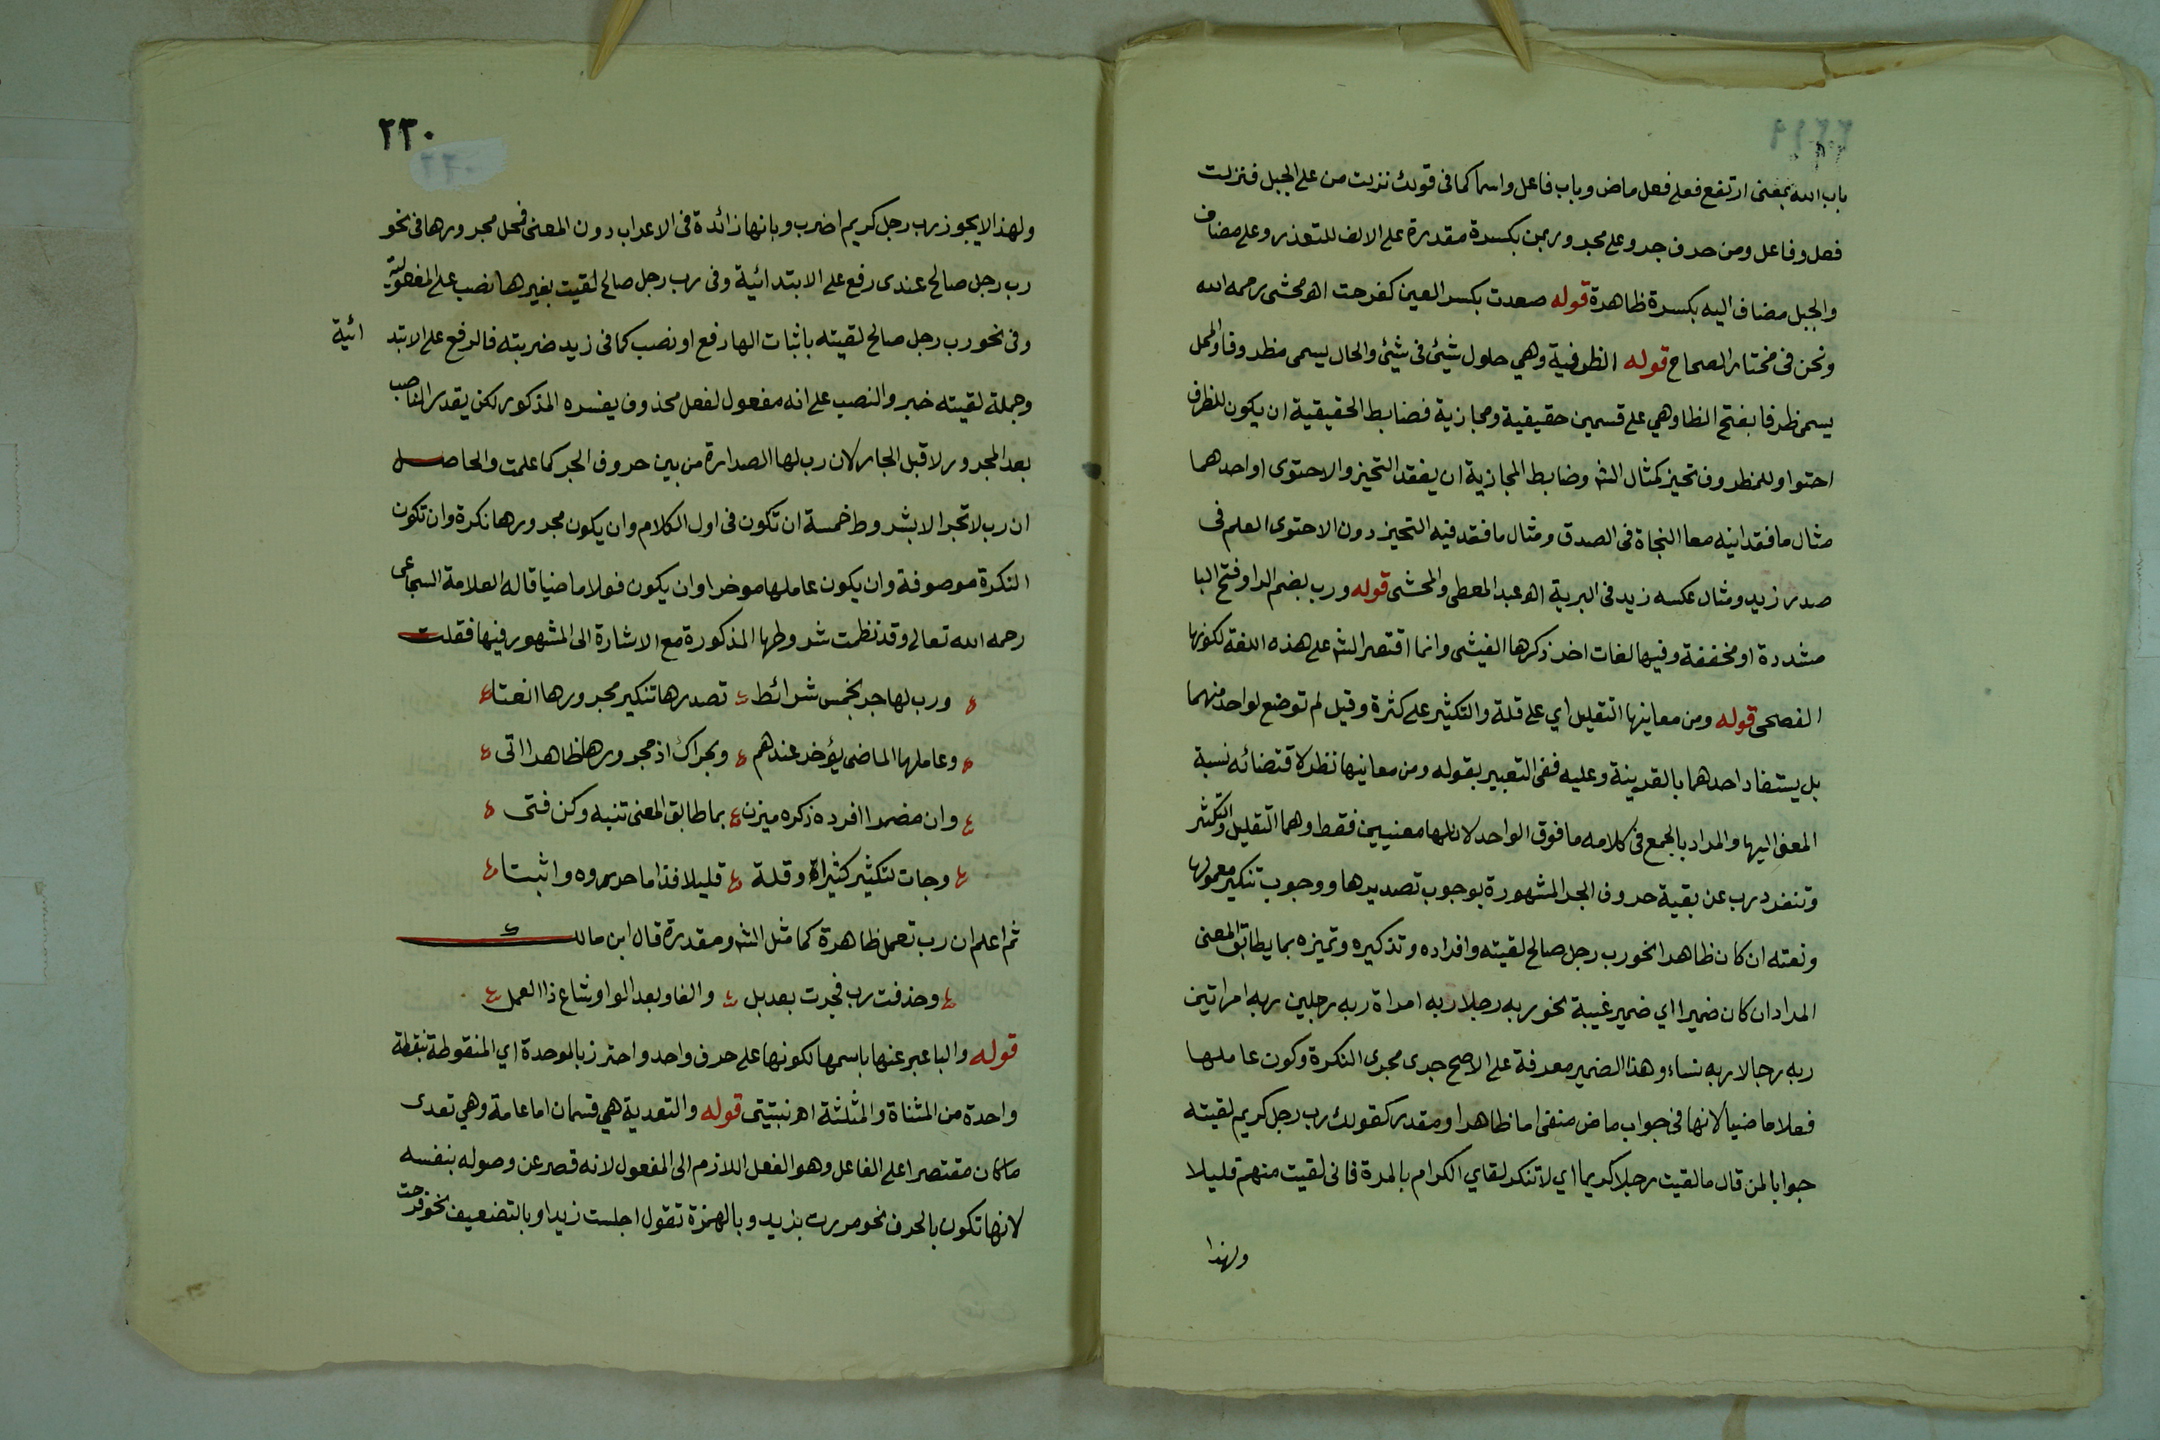 باب الله بمعنى ارتفع فعلى فعل ماض وباب فاعل واسما كما في قولك نزلت من على الجبل فنزلت
فعل وفاعل ومن حرف جر وعلى مجرور بمن بكسرة مقدرة على الالف للتعذر وعلى مضاف
والجبل مضاف اليه بكسرة ظاهرة قوله صعدت بكسر العين كفرحت اهـ محشى رحمه الله
ونحن في مختار الصحاح قوله الظرفية وهي حلول شيئ في شيئ والحال يسمى مظروفا والمحل
يسمى ظرفا بفتح الظا وهي على قسمين حقيقية ومجازية فضابط الحقيقية ان يكون للظرف
احتوا وللمظروف تحيز كمثال الشـ وضابط المجازية ان يفقد التحيز والاحتوى او احدهما
مثال ما فقد انيه معا النجاة في الصدق ومثال ما فقد فيه التحيز دون الاحتوى العلم في
صدر زيد ومثال عكسه زيد في البرية اهـ عبد المعطى والمحشى قوله ورب بضم الرا وفتح البا
مشددة او مخففة وفيها لغات اخر ذكرها الفيشى وانما اقتصر الشـ على هذه اللغة لكونها
الفصحى قوله ومن معاينها التقليل اي على قلة والتكثير على كثرة وقيل لم توضع لواحد منهما
بل يستفاد احدهما بالقرينة وعليه ففى التعبير بقوله ومن معانيها نظر لاقتضائه نسبة
المعنى اليها والمراد بالجمع في كلامه ما فوق الواحد لان لها معنيين فقط وهما التقليل والتكثير
وتنفرد رب عن بقية حروف الجر المشهورة بوجوب تصديرها ووجوب تنكير معمولها
ونعته ان كان ظاهرا نحو رب رجل صالح لقيته وافراده وتذكيره وتميزه بما يطابق المعنى
المراد ان كان ضميرا اي ضمير غيبة نحو ربه رجلا ربه امراة ربه رجلين ربه امراتين
ربه رجالا ربه نساء وهذا الضمير معرفة على الاصح جرى مجرى النكرة وكون عاملها
فعلا ماضيا لانها في جواب ماض منفى اما ظاهر او مقدر كقولك رب رجل كريم لقيته
جوابا لمن قال ما لقيت رجلا كريما اي لا تنكر لقاي الكرام بالمرة فانى لقيت منهم قليلا
ولهذا
٢٢٠
ولهذا لا يجوز رب رجل كريم اضرب وبانها زائدة في الاعراب دون المعنى فمحل مجرورها في نحو
رب رجل صالح عندى رفع على الابتدائية وفى رب رجل صالح لقيت بغيرها نصب على المفعولية
وفى نحو رب رجل صالح لقيته باثبات الها رفع او نصب كما في زيد ضربته فالرفع على الابتد ائية
وجملة لقيته خبر والنصب على انه مفعول لفعل محذوف يفسره المذكور لكن يقدر الناصب
بعد المجرور لا قبل الجار لان رب لها الصدارة من بين حروف الجر كما علمت والحاصل
ان رب لا تجر الا بشروط خمسة ان تكون في اول الكلام وان يكون مجرورها نكرة وان تكون
النكرة موصوفة وان يكون عاملها موخرا وان يكون فعلا ماضيا قاله العلامة السجاعى
رحمه الله تعالى وقد نظمت شروطها المذكورة مع الاشارة الى المشهور فيها فقلت
ورب لها جر بخمس شرائط تصدرها تنكير مجرورها انعتا
وعاملها الماضى يؤخر عندهم وبجراك اذ مجرورها ظاهرا اتى
وان مضمرا افرده ذكره ميزن بما طابق المعنى تنبه وكن فتى
وجات لتكثير كثيرا وقلة قليلا فذا ما حرروه واثبتا
ثم اعلم ان رب تعمل ظاهرة كما مثل الشـ ومقدرة قال ابن مالك
وحذفت رب فجرت بعد بل والفا وبعد الواو شاع ذا العمل
قوله والبا عبر عنها باسمها لكونها على حرف واحد واحترز بالموحدة اي المنقوطة بنقطة
واحدة من المثناة والمثلثة اهـ نبتيتى قوله والتعدية هي قسمان اما عامة وهي تعدى
ما كان مقتصرا على الفاعل وهو الفعل اللازم الى المفعول لانه قصر عن وصوله بنفسه
لانها تكون بالحرف نحو مررت بزيد وبالهمزة تقول اجلست زيدا وبالتضعيف نحو فرحت